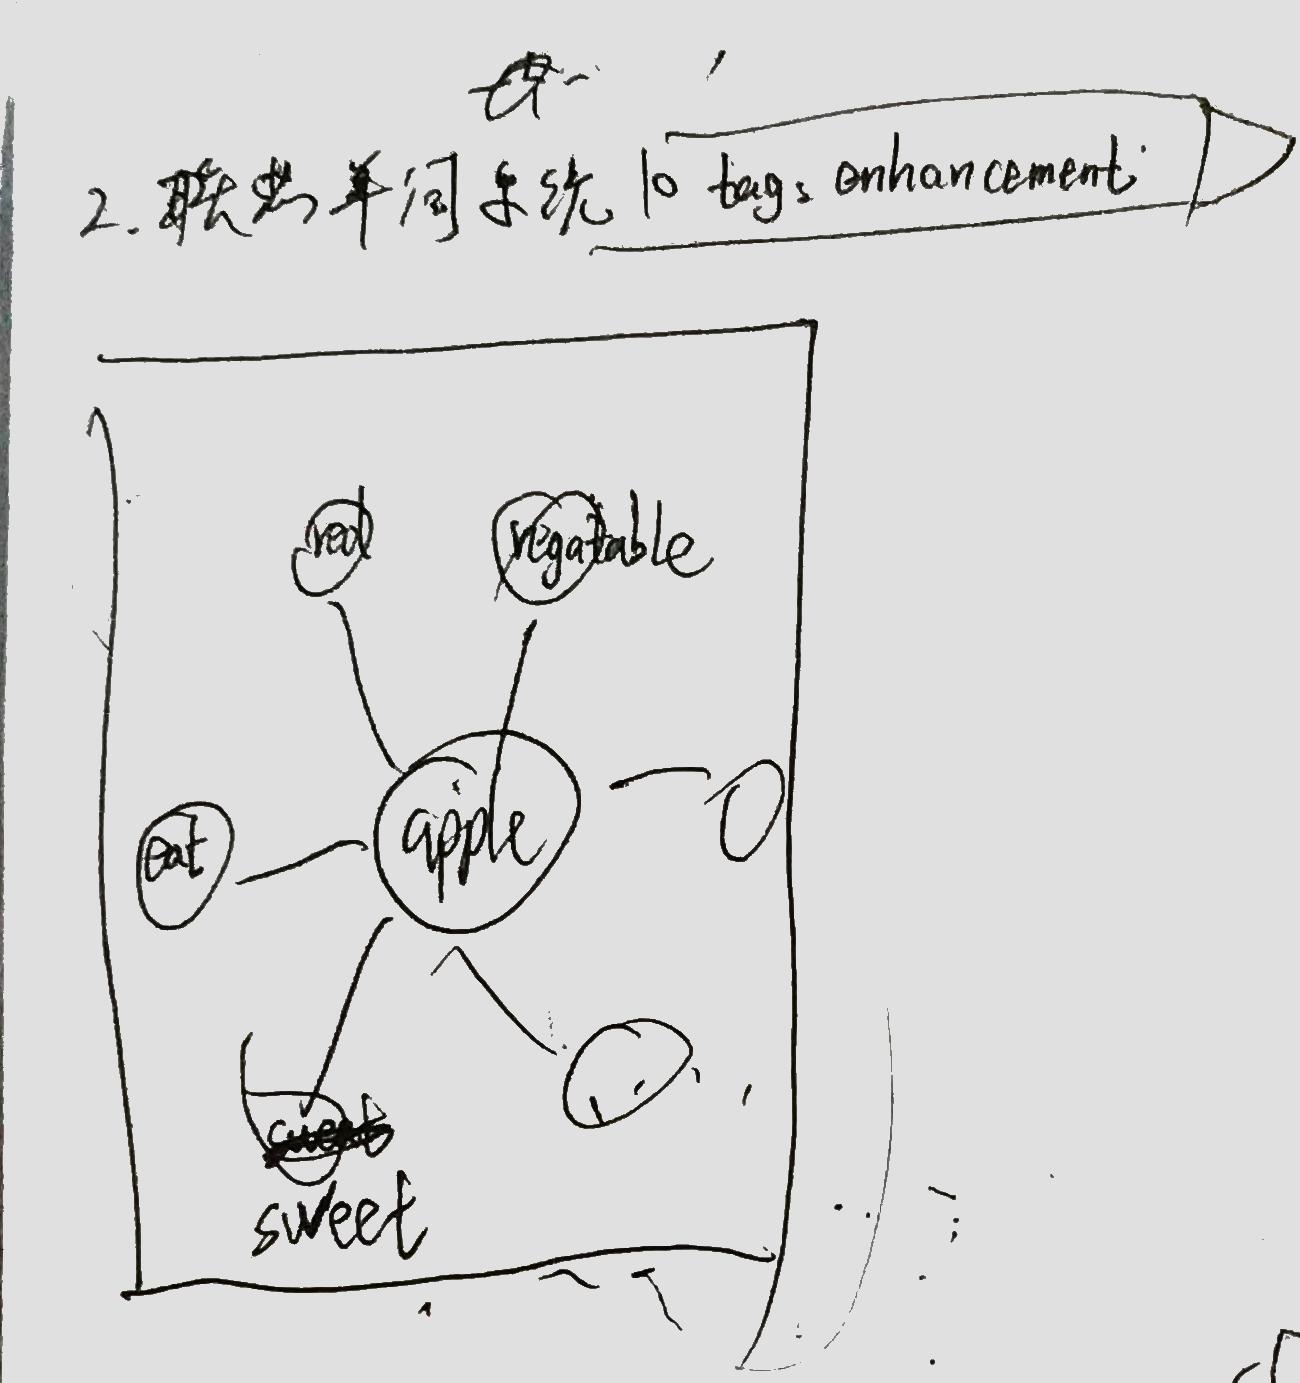 2. 联想单词系统 10 tags enhancement
red vegatable
apple
eat
sweet